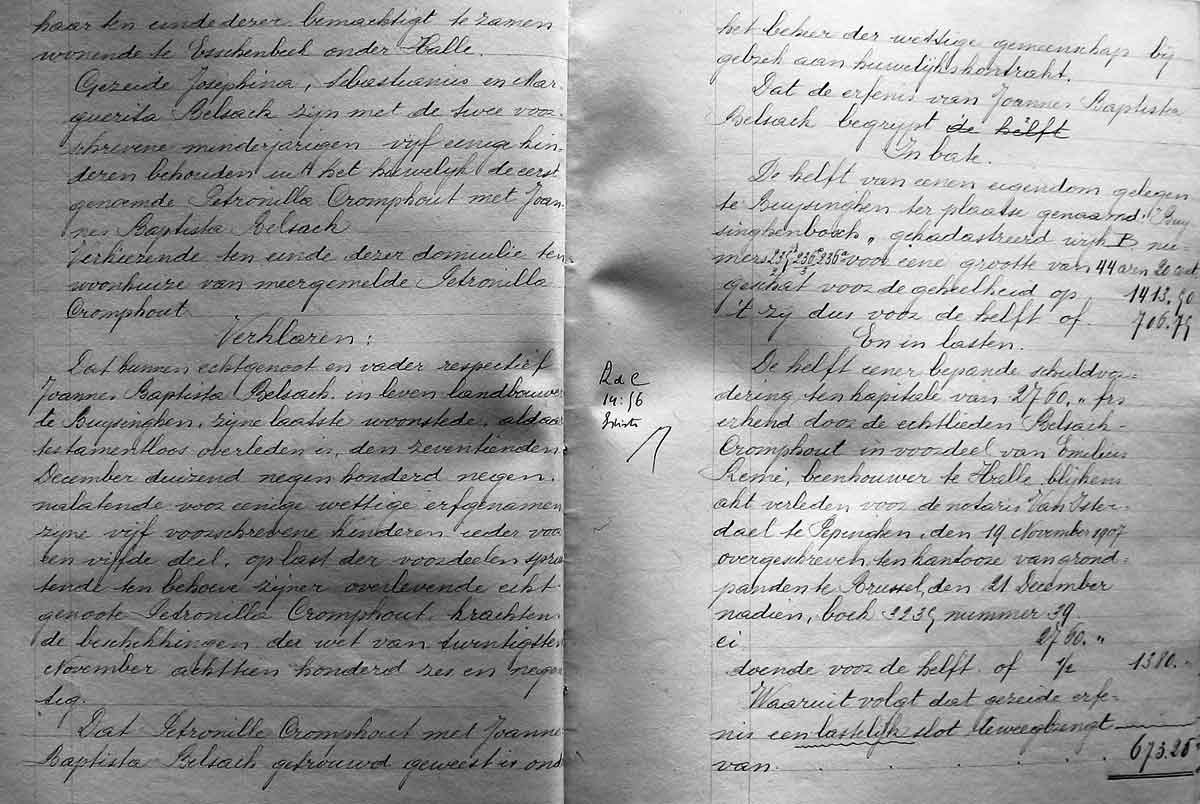 haar ten einde derer bemachtigt te zamen
wonende te Esschenbeek onder Halle.
Gezeide Josephina, Sebastianus en Mar-
guerita Belsack zijn met de twee voor-
schrevene minderjarigen vijf eenige kin-
deren behouden uit het huwelijk de eerst
genoemde Petronilla Cromphout met Joan-
nes Baptista Belsack
Verkierende ten einde derer domicilie ten
woonhuize van meergemelde Petronilla
Cromphout
Verklaren:
Dat hunnen echtgenoot en vader respectief
Joannes Baptista Belsack in leven landbouwer
te Buysinghen, zijne laatste woonstede, aldaar
testamentloos overleden is, den zeventienden
December duizend negen honderd negen.
nalatende voor eenige wettige erfgenamen
zijne vijf voorschrevene kinderen ieder voor
een vijfde deel, op last der voordeelen sprui
tende ten behoeve zijner overlevende echt
genoote Petronilla Cromphout, krachtens
de beschikkingen der wet van twintigsten
November achttien honderd zes en negen
tig.
Dat Petronilla Cromphout met Joannes
Baptista Belsack getrouwd geweest is ond
RdC
14:56
het beheer der wettige gemeenschap bij
gebrek aan huwelijkskontrakt.
Dat de erfenis van Joannes Baptista
Belsack begrijpt de helft
In bate.
De helft van eenen eigendom gelegen
te Buysinghen ter plaatse genaamd "Buy
singhenbosch" gekadastreerd wijk B nu-
mers 235 236 236a voor eene grootte van 44 aren 20 cent
geschat voor de geheelheid op 1413.50
't zij dus voor de helft of 706.75
En in lasten.
De helft eener bepande schuldvor-
dering ten kapitale van 2760. " frs
erkend door de echtlieden Belsack-
Cromphout in voordeel van Emilius
Remi, beenhouwer te Halle blijkens
akt verleden voor de notaris Van Ister-
dael te Pepinghen, den 19 November 1907
overgeschreven ten kantoore van grond-
panden te Brussel, den 21 December
nadien, boek 3235 nummer 39
ci 2760. "
doende voor de helft of 1/2 1380. "
Waaruit volgt dat gezeide erfe-
nis een lastelijk slot teweegbrengt
van . . . . . . . 673.25